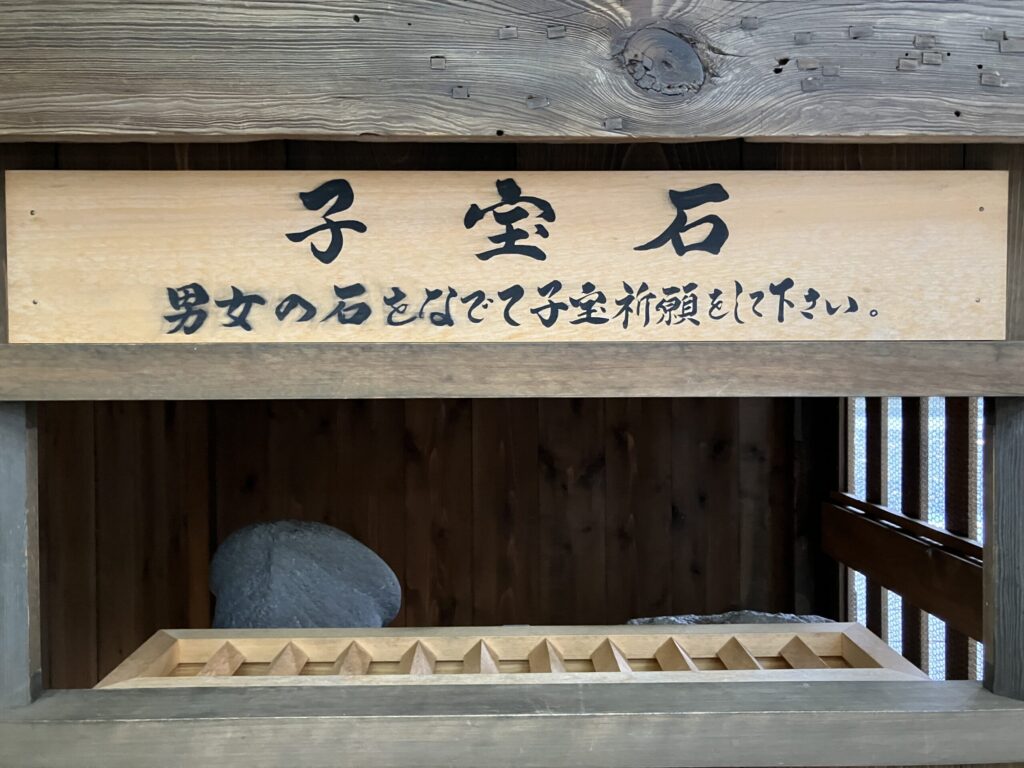 子宝石
男女の石をなでて子宝祈願をして下さい。